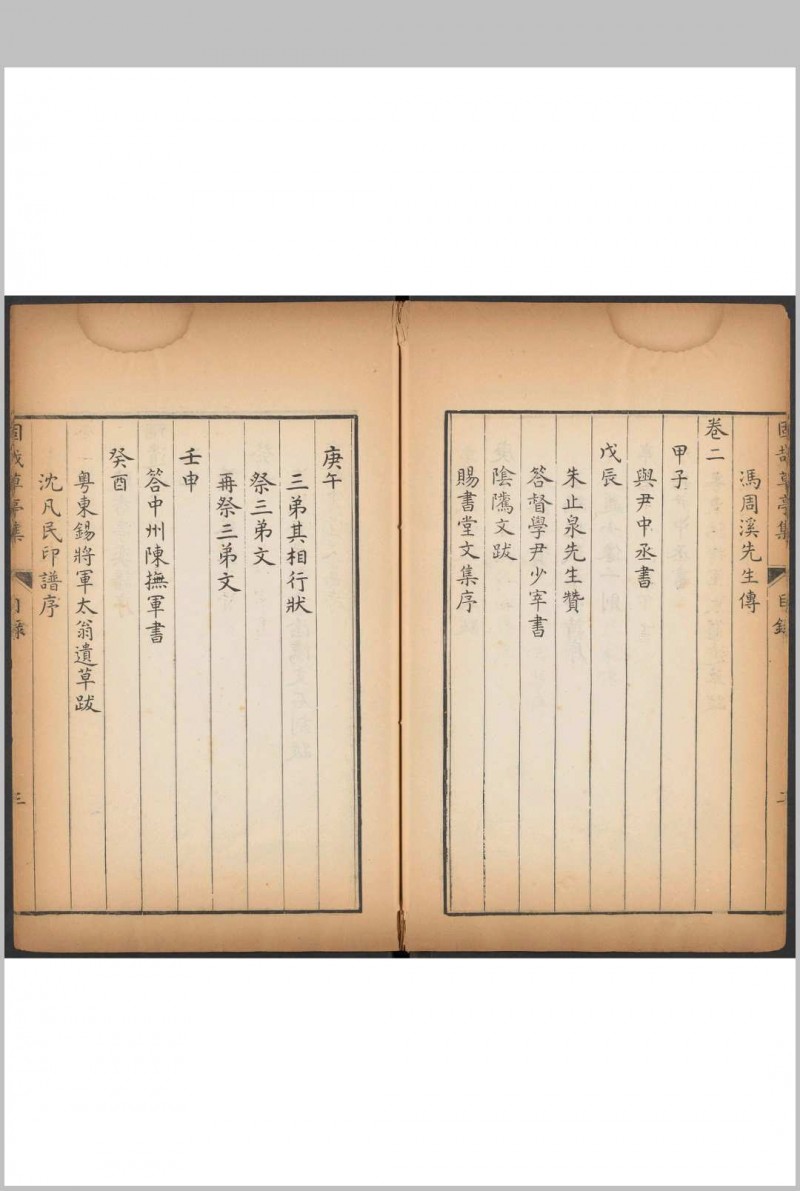 馮周溪先生傳
卷二
甲子
與尹中丞書
戊辰
朱止泉先生贊
答督學尹少宰書
陰隲文跋
賜書堂文集序
庚午
三弟其相行狀
祭三弟文
再祭三弟文
壬申
答中州陳撫軍書
癸酉
粵東錫將軍太翁遺草跋
沈凡民印譜序
草亭集
目錄
三